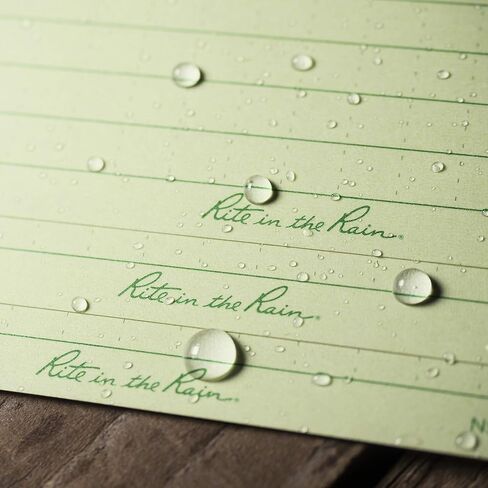 Rite in the Rain®
Rite in the Rain®
Rite in the Rain®